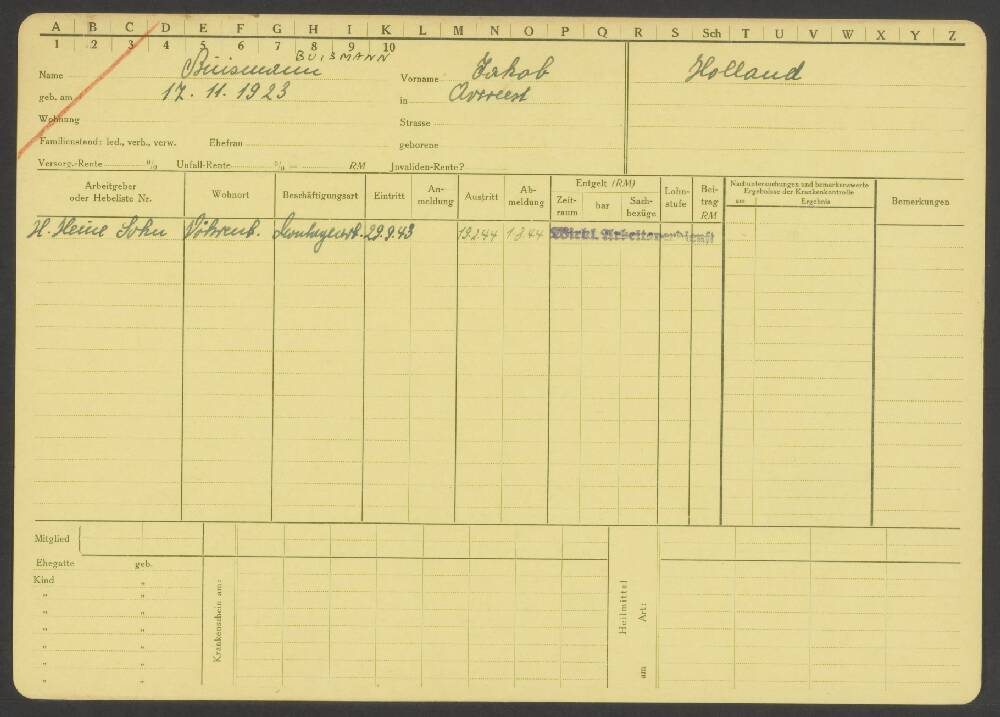 A B C D E F G H I K L M N O P Q R S Sch T U V W X Y Z
1 2 3 4 5 6 7 8 9 10
BUISMANN
Name Buismann Vorname Jakob Holland
geb. am 17. 11. 1923 in Avereest
Wohnung Strasse
Familienstand: led., verh., verw. Ehefrau geborene
Versorg.-Rente % Unfall-Rente % = RM Invaliden-Rente?
Arbeitgeber oder Hebeliste Nr. Wohnort Beschäftigungsart Eintritt An-meldung Austritt Ab-meldung Entgelt (RM) Zeit-raum bar Sach-bezüge Lohn-stufe Bei-trag RM Nachuntersuchungen und bemerkenswerte Ergebnisse der Krankenkontrolle am Ergebnis Bemerkungen
H. Heine Sohn Vöhrenb. Montagearb. 29.9.43 19.2.44 1.3.44 Wirkl. Arbeitsverdienst
Mitglied
Ehegatte geb.
Kind "
" "
" "
" "
" "
" "
" "
Krankenschein am:
Heilmittel
Art:
am